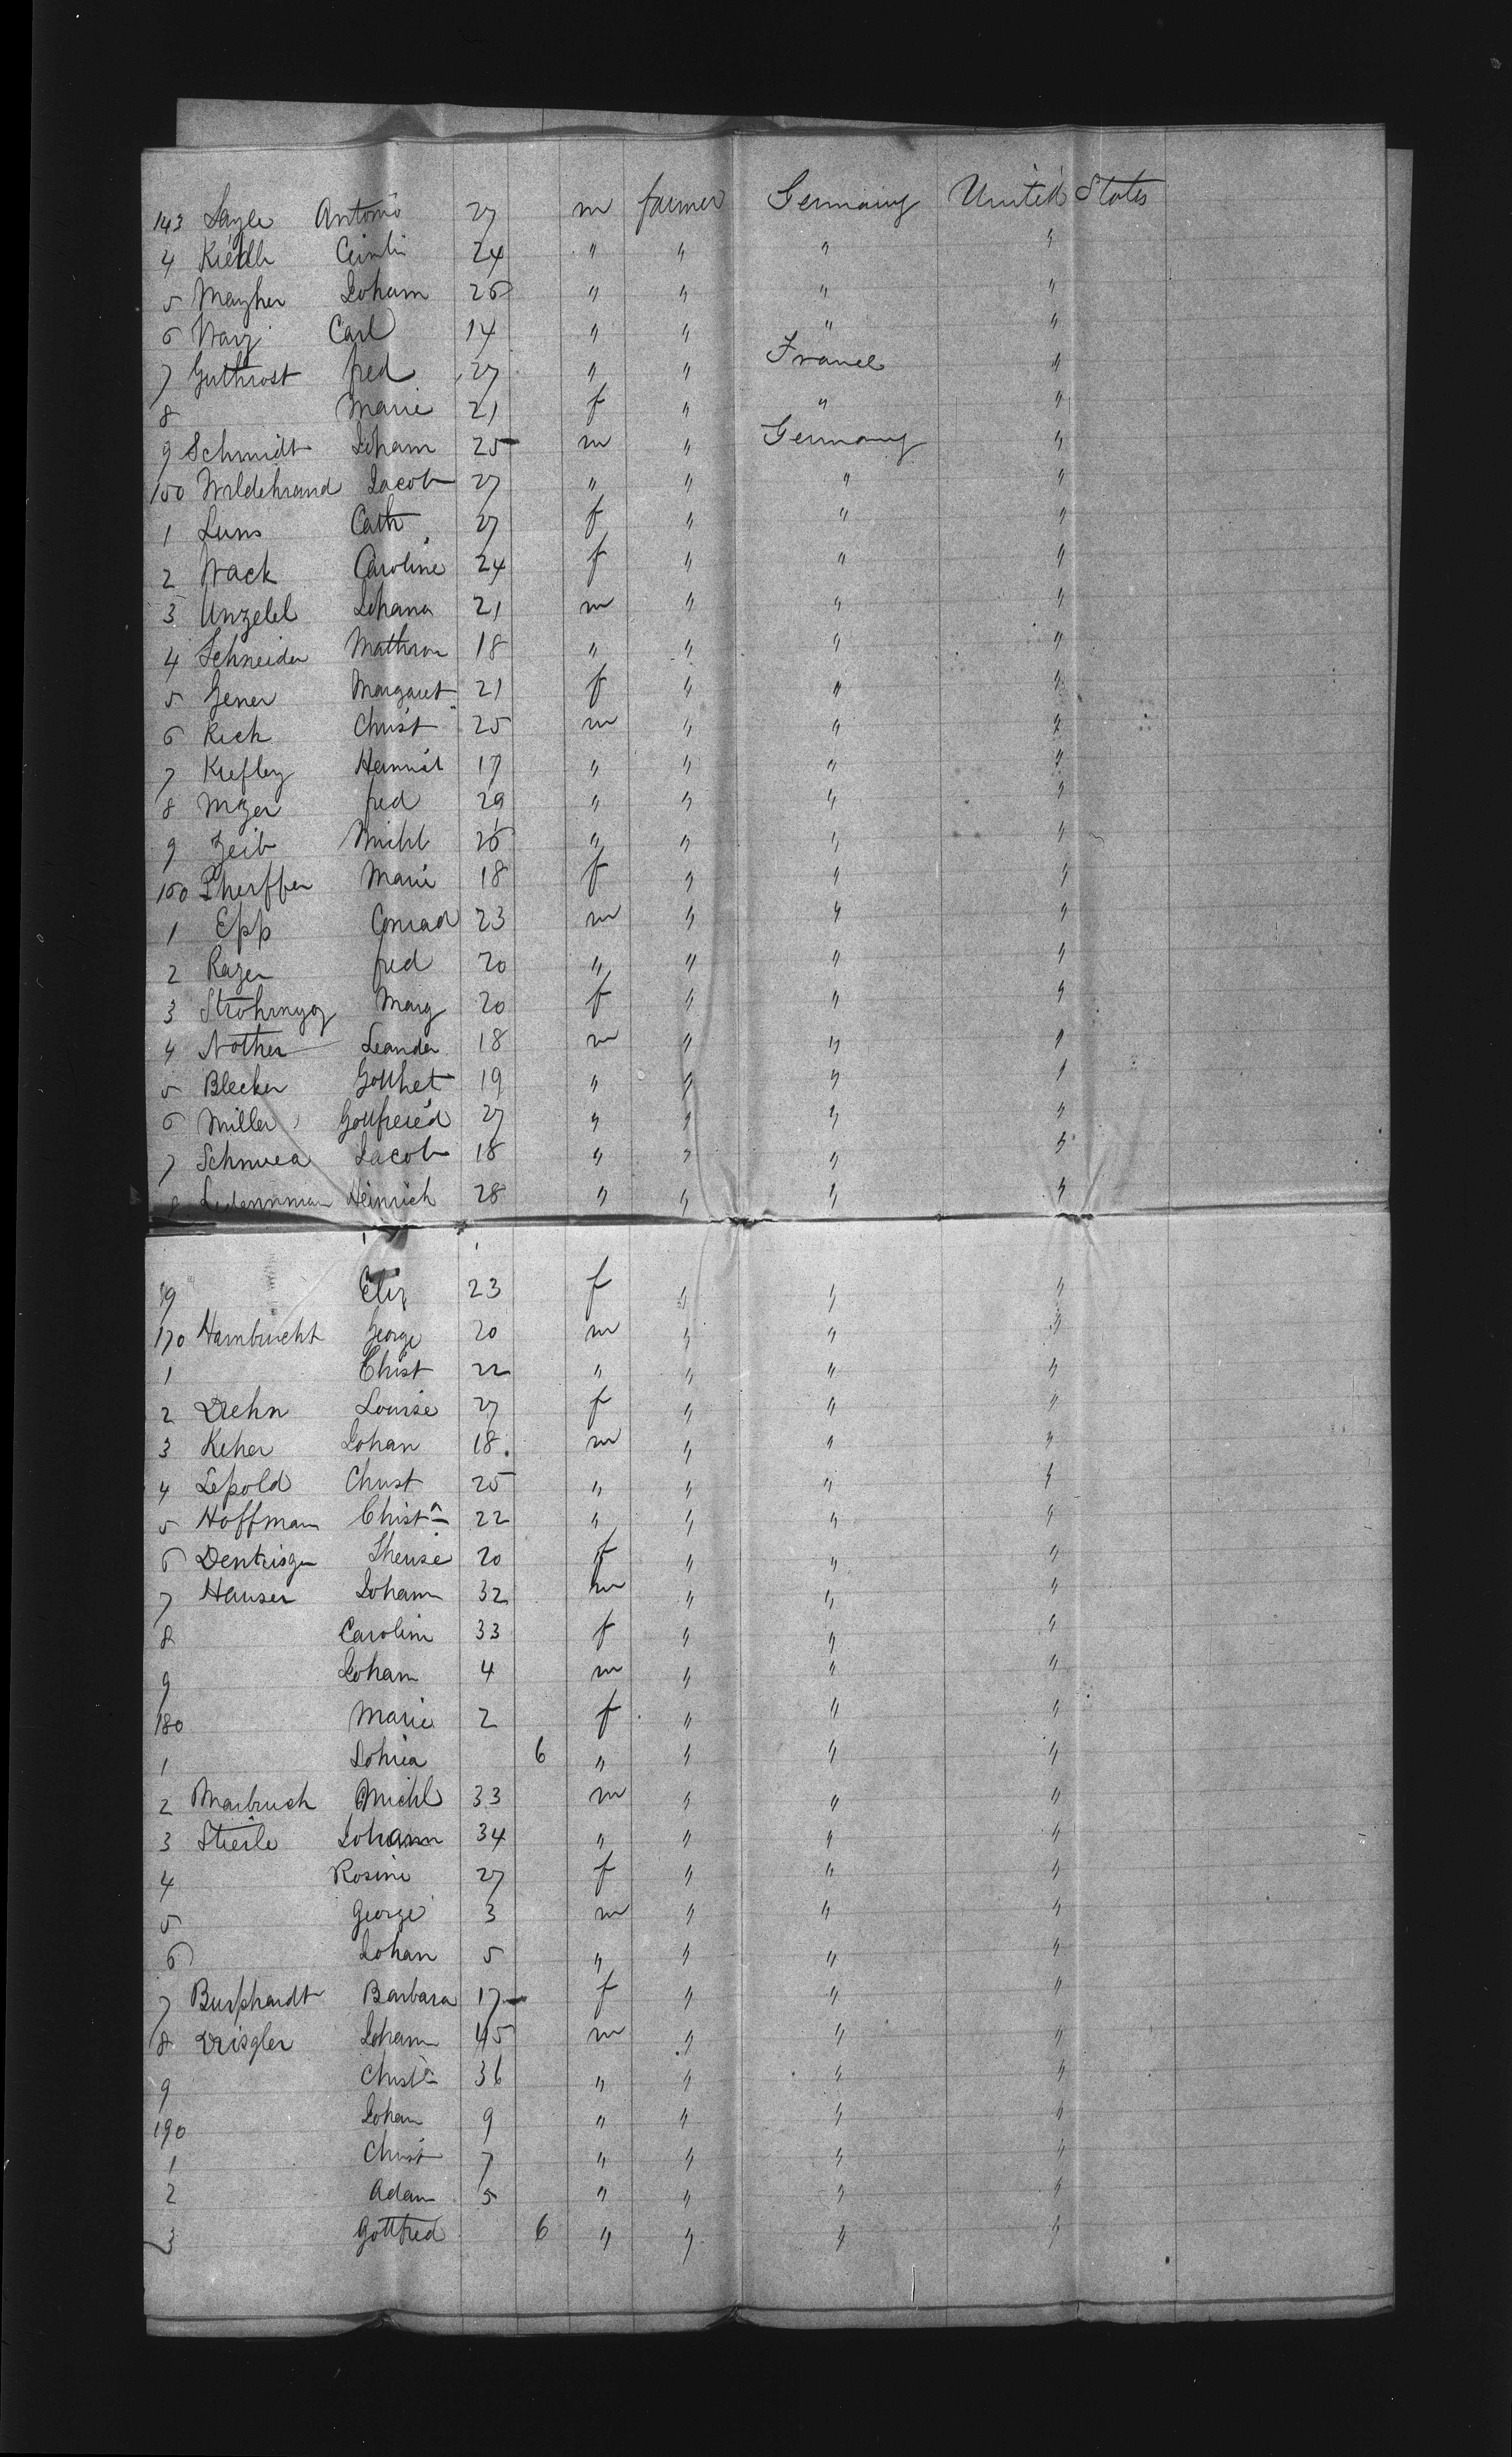 143 Layle Antono 27 m farmer Germany United States
4 Kiedh 24 " " " "
5 Mayher Joham 26 " " " "
6 Warz Carl 14 " " " "
7 Guthrost fred 27 " " France "
8 Marie 21 f " " "
9 Schmidt Joham 25 m " Germany "
150 Wildehrand Jacob 27 " " " "
1 Luns Cath 27 f " " "
2 Wack Caroline 24 f " " "
3 Unzelel Johana 21 m " " "
4 Schneider Mathson 18 " " " "
5 Gener Margaret 21 f " " "
6 Rich Christ 25 m " " "
7 Kiefley 17 " " " "
8 Mezer fred 29 " " " "
9 Zeib Michl 26 " " " "
160 Pherffer Marie 18 f " " "
1 Epp Conrad 23 m " " "
2 Razer fred 20 " " " "
3 Marg 20 f " " "
4 Nother Leander 18 m " " "
5 Blecker Gotthet 19 " " " "
6 Miller Gottfrered 27 " " " "
7 Schmuea Jacob 18 " " " "
8 Ledermman Heinrich 28 " " " "
9 Eliz 23 f " " "
170 Hambrucht George 20 m " " "
1 Christ 22 " " " "
2 Drehn Louise 27 f " " "
3 Keher Johan 18. m " " "
4 Lepold Christ 25 " " " "
5 Hoffman Christn 22 " " " "
6 Dentrisgn Therise 20 f " " "
7 Hauser Joham 32 m " " "
8 Carolin 33 f " " "
9 Joham 4 m " " "
180 Marie 2 f " " "
1 Johrea 6 " " " "
2 Marbruch Michl 33 m " " "
3 Stierle Johann 34 " " " "
4 Rosine 27 f " " "
5 George 3 m " " "
6 Johan 5 " " " "
7 Burphardt Barbara 17 f " " "
8 Drisgler Joham 45 m " " "
9 Christn 36 " " " "
190 Joham 9 " " " "
1 Christ 7 " " " "
2 Adam 5 " " " "
3 Gottfred 6 " " " "